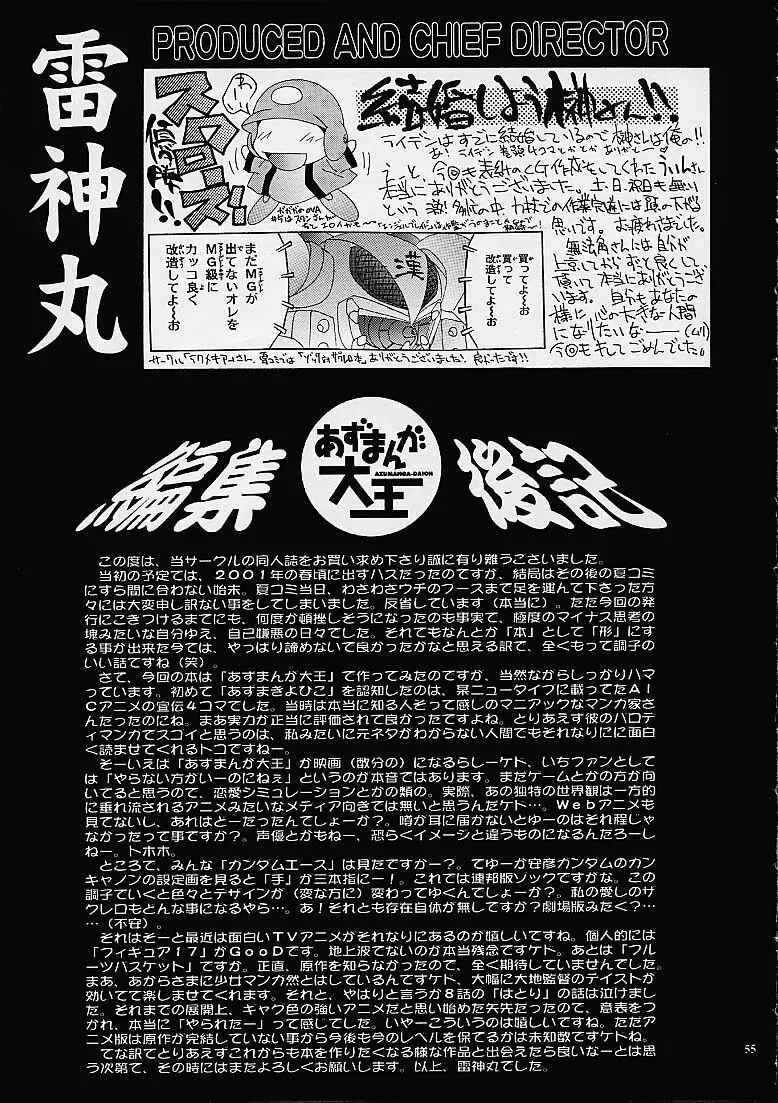 PRODUCED AND CHIEF DIRECTOR
雷神丸
結婚しよう榊さん!!
ライデンはすでに結婚しているので榊さんは俺の!!
えーと、今回も表紙のCG作業をしてくれたういんさん
本当にありがとうございました。土、日、祝日も無い
思いです。お疲れさまでした。
頂いて本当にありがとうござ
います。自分もあなたの
様に、心の大きな人間
になりたいなー(ムリ)
今回もキしてごめんでした。
買ってよ〜お
買って
改造してよ〜お
漢
まだMGが
出てないオレを
MG級に
カッコ良く
改造してよ〜お
あずまんが
AZUMANGA-DAIOH
大王
編集後記
この度は、当サークルの同人誌をお買い求め下さり誠に有り難うございました。
当初の予定では、2001年の春頃に出すハズだったのですが、結局はその後の夏コミ
にすら間に合わない始末。夏コミ当日、わざわざウチのブースまで足を運んで下さった方
々には大変申し訳ない事をしてしまいました。反省しています(本当に)。ただ今回の発
行にこぎつけるまでにも、何度か頓挫しそうになったのも事実で、極度のマイナス思考の
塊みたいな自分ゆえ、自己嫌悪の日々でした。それでもなんとか「本」として「形」にす
る事が出来た今では、やっぱり諦めないで良かったかなと思える訳で、全くもって調子の
いい話ですね(笑)。
さて、今回の本は「あずまんが大王」で作ってみたのですが、当然ながらしっかりハマ
っています。初めて「あずまきよひこ」を認知したのは、某ニュータイプに載ってたAI
Cアニメの宣伝4コマでした。当時は本当に知る人ぞって感じのマニアックなマンガ家さ
んだったのにね。まあ実力が正当に評価されて良かったですよね。とりあえず彼のパロデ
ィマンガでスゴイと思うのは、私みたいに元ネタがわからない人間でもそれなりにに面白
く読ませてくれるトコですねー。
そーいえば「あずまんが大王」が映画(数分の)になるらしーケド、いちファンとして
は「やらない方がいーのにねぇ」というのが本音ではあります。まだゲームとかの方が向
いてると思うので、恋愛シミュレーションとかの類の。実際、あの独特の世界観は一方的
に垂れ流されるアニメみたいなメディア向きでは無いと思うんだケド…。Webアニメも
見てないし、あれはどーだったんでしょーか?噂が耳に届かないとゆーのはそれ程じゃ
なかったって事ですか?声優とかもねー、恐らくイメージと違うものになるんだろーし
ねー。トホホ。
ところで、みんな「ガンダムエース」は見たですかー?てゆーか安彦ガンダムのガン
キャノンの設定画を見ると「手」が三本指にー!。これでは連邦版ゾックですがな。この
調子でいくと色々とデザインが(変な方に)変わってゆくんでしょーか?私の愛しのザ
クレロもどんな事になるやら…。あ!それとも存在自体が無しですか?劇場版みたく?…
…(不安)。
それはそーと最近は面白いTVアニメがそれなりにあるのが嬉しいですね。個人的には
「フィギュア17」がGooDです。地上波でないのが本当残念ですケド。あとは「フル
ーツバスケット」ですか。正直、原作を知らなかったので、全く期待していませんでした。
まあ、あからさまに少女マンガ然とはしているんですケド、大幅に大地監督のテイストが
効いてて楽しませてくれます。それと、やはりと言うか8話の「はとり」の話は泣けまし
た。それまでの展開上、ギャグ色の強いアニメだと思い始めた矢先だったので、意表をつ
かれ、本当に「やられたー」って感じでした。いやーこういうのは嬉しいですね。ただア
ニメ版は原作が完結していない事から今後も今のレベルを保てるかは未知数ですケドね。
てな訳でとりあえずこれからも本を作りたくなる様な作品と出会えたら良いなーとは思
う次第で、その時にはまたよろしくお願いします。以上、雷神丸でした。
55